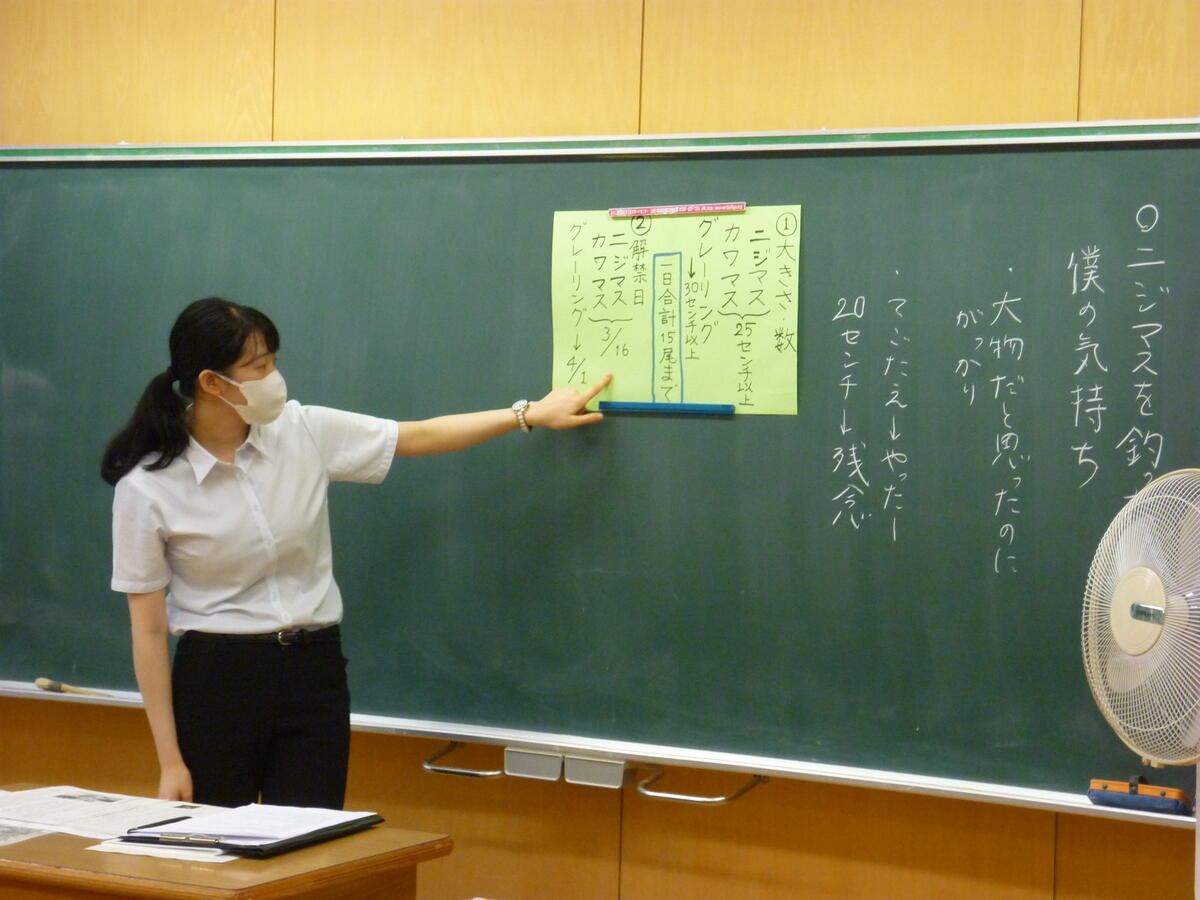 ○ニジマスを釣っ
僕の気持ち
・大物だと思ったのに
がっかり
・てごたえ→やったー
20センチ→残念
①大きさ・数
ニジマス
カワマス
25センチ以上
グレーリング
→30センチ以上
一日合計15尾まで
②解禁日
ニジマス
カワマス
3/16
グレーリング→4/1